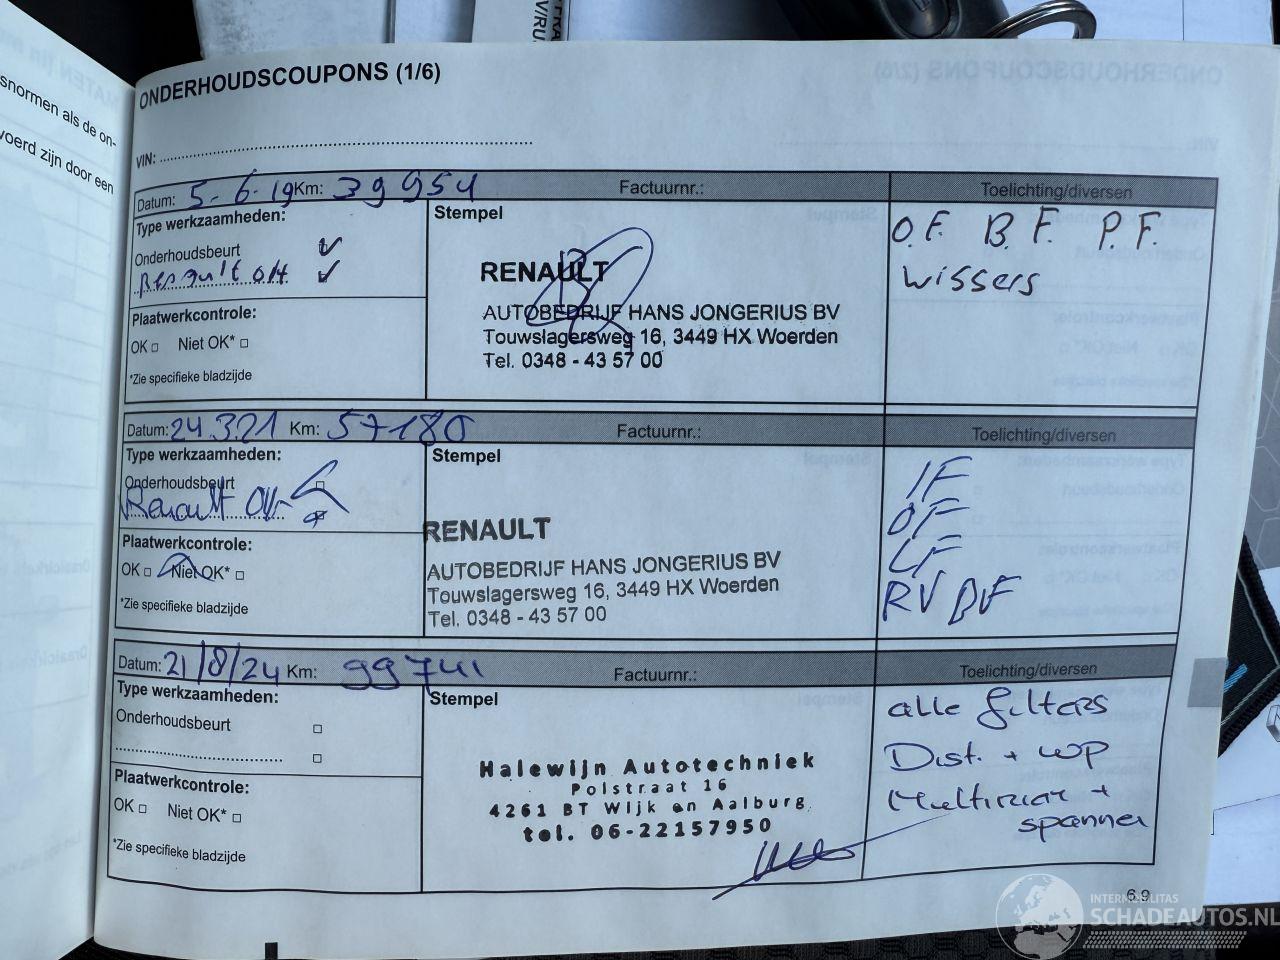 snormen als de on-
voerd zijn door een
ONDERHOUDSCOUPONS (1/6)
VIN:
Datum: 5-6-19 Km: 39954 Factuurnr.: Toelichting/diversen
Type werkzaamheden:
Stempel
Onderhoudsbeurt ✓
✓
O.F. B.F. P.F.
Wissers
RENAULT
AUTOBEDRIJF HANS JONGERIUS BV
Touwslagersweg 16, 3449 HX Woerden
Tel. 0348 - 43 57 00
Plaatwerkcontrole:
OK □ Niet OK* □
*Zie specifieke bladzijde
Datum: 24.3.21 Km: 57180 Factuurnr.: Toelichting/diversen
Type werkzaamheden:
Stempel
Onderhoudsbeurt □
Renault
IF
OF
LF
RV BF
RENAULT
AUTOBEDRIJF HANS JONGERIUS BV
Touwslagersweg 16, 3449 HX Woerden
Tel. 0348 - 43 57 00
Plaatwerkcontrole:
OK □ Niet OK* □
*Zie specifieke bladzijde
Datum: 21/8/24 Km: 99741 Factuurnr.: Toelichting/diversen
Type werkzaamheden:
Stempel
Onderhoudsbeurt □
□
alle filters
Dist. + wp
Multiriem +
spanner
Halewijn Autotechniek
Polstraat 16
4261 BT Wijk en Aalburg
tel. 06-22157950
Plaatwerkcontrole:
OK □ Niet OK* □
*Zie specifieke bladzijde
6.9
INTERMOBILITAS
SCHADEAUTOS.NL